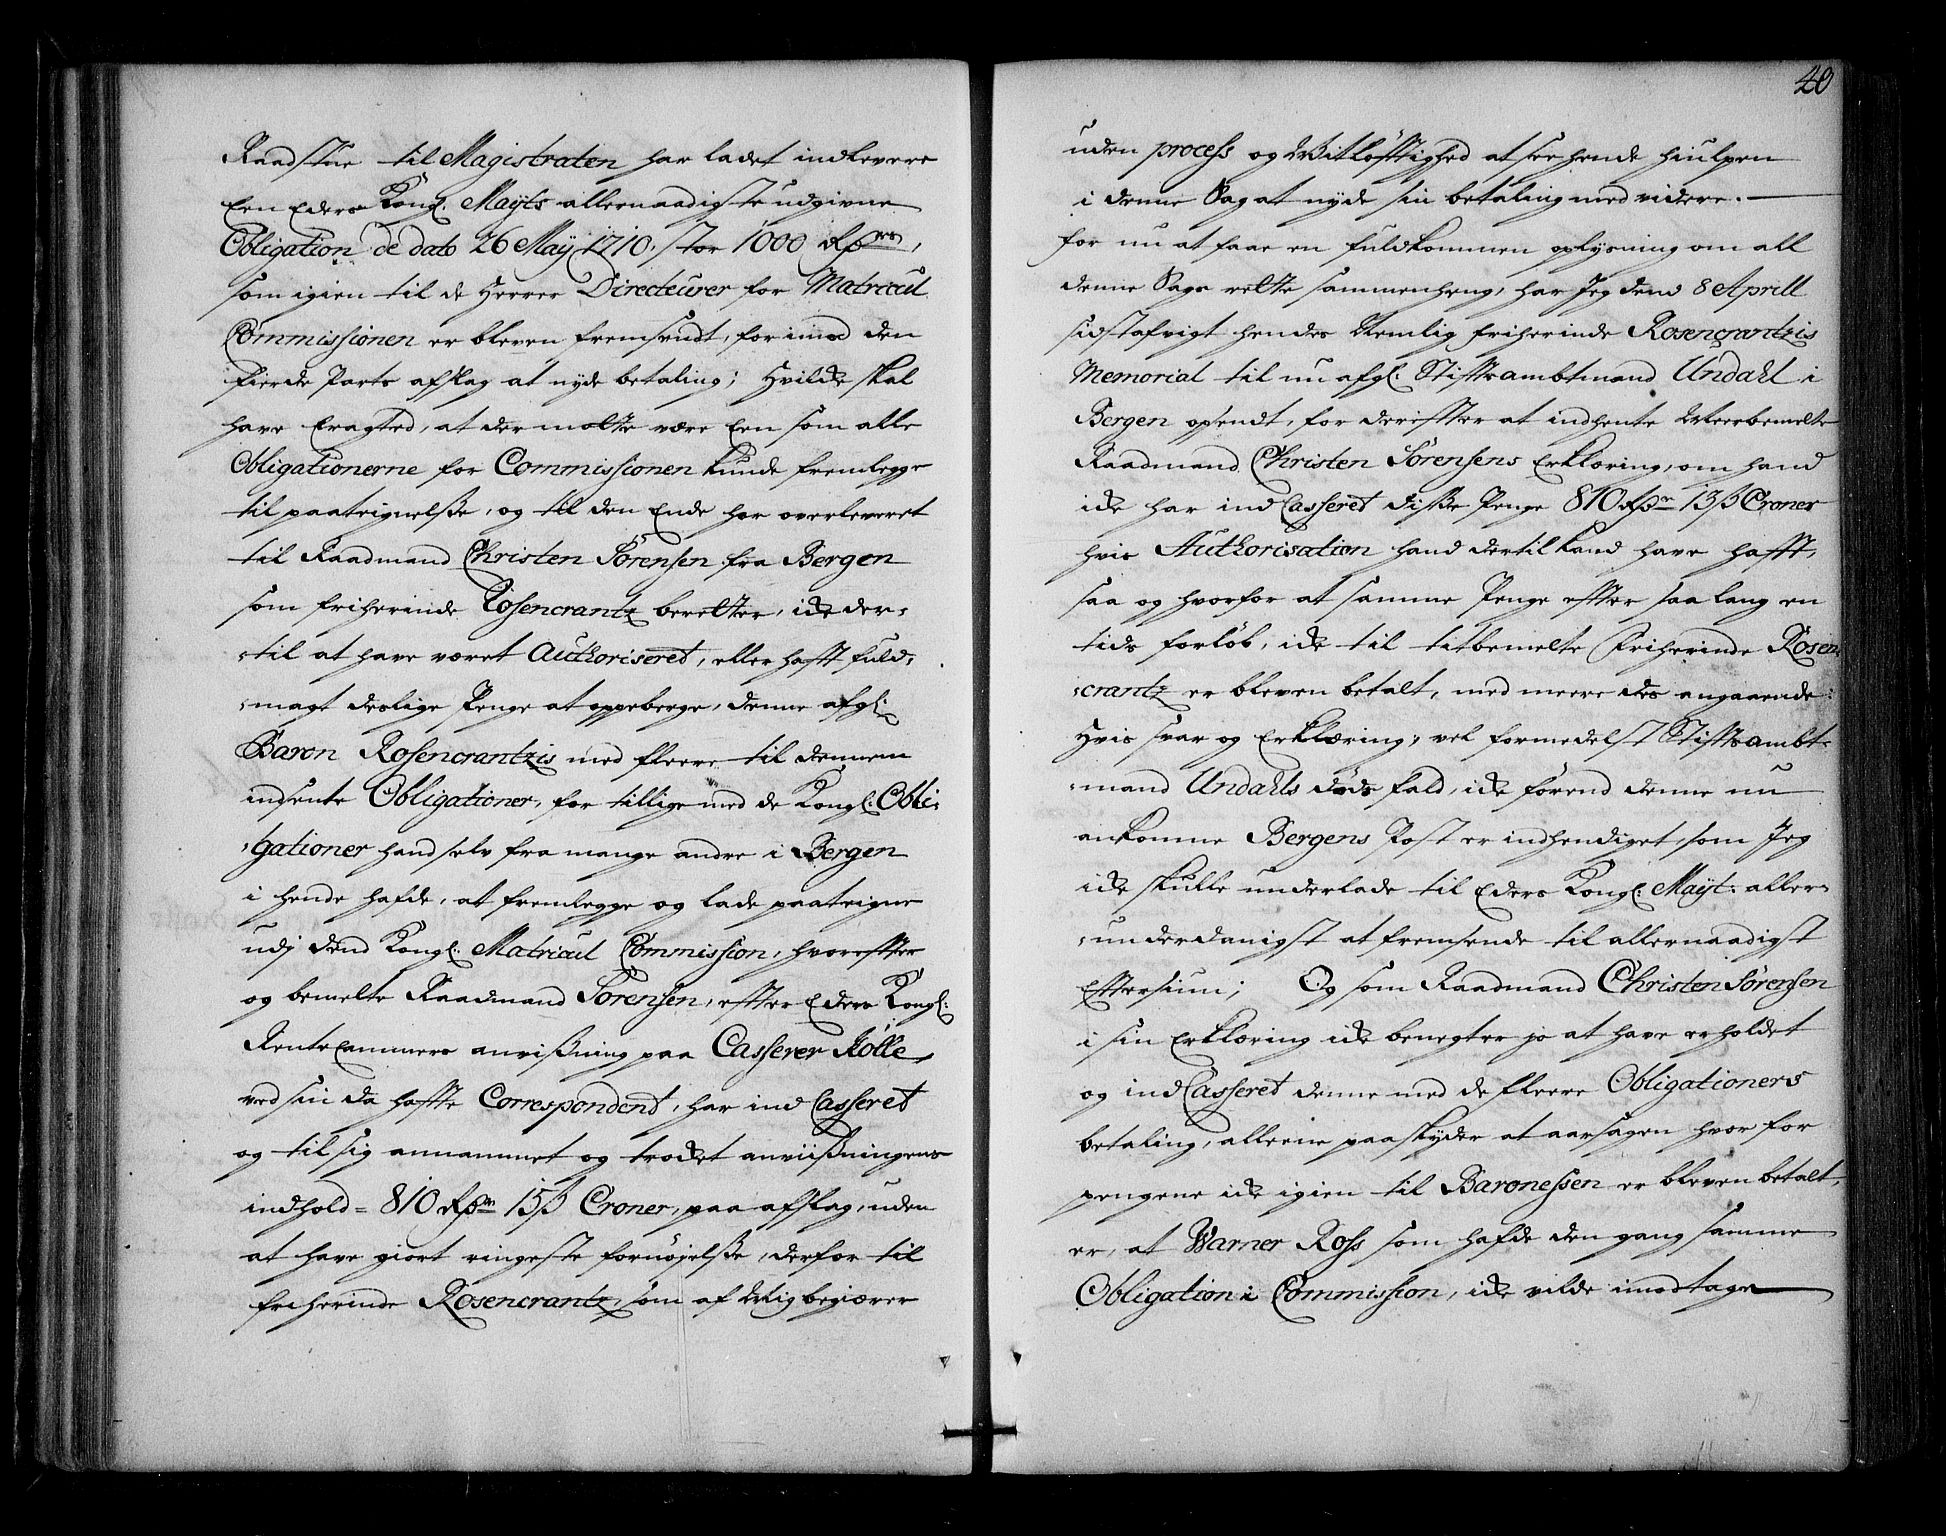 Raadstue til Magistraten har ladet indlevere
Een Eders Kongl: Mayts allernaadigste udgivne
Obligation de dato 26 May 1710. stor 1000 Rdr,
som igien til de Herrer Directeurer for Matricul
Commissionen er bleven fremsendt, for imod den
fierde Parts afslag at nyde betaling; Hvilcke skal
have Eragted, at der motte være Een som alle
Obligationerne for Commissionen kunde fremlegge
til paateignelsse, og til den Ende har overleveret
til Raadmand Christen Sørensen fra Bergen
som friherinde Rosencrantz beretter, icke der=
=til at have været Authoriseret, eller hafft fuld=
=magt deslige Penge at oppeberge, denne afgl:
Baron Rosencrantzis med fleere til dennem
indsente Obligationer, for tillige med de Kongl: Obli=
=gationer hand selv fra mange andre i Bergen
i hende hafde, at fremlegge og lade paateigne
udj dend Kongl: Matricul Commission, hvoreffter
og bemelte Raadmand Sørensen, effter Eders Kongl:
RenteCammers anvissning paa Casserer Rolle,
ved sin da haffte Correspondent, har ind Casseret
og til sig annammet og trocket anviissningens
indhold = 810 Rdr 15 s Croner, paa afslag, uden
at have giort ringeste fornøjelsse, derfor til
friherinde Rosencrantz, som af Mig begiærer
40
uden process og Witløfftighed at see hende hiulpen
i denne Sag at nyde sin betaling med videre.
for nu at faae en fuldkommen oplysning om all
denne Sags rette sammenheng, har Jeg dend 8 Aprill
sidstafvigt hendes Nemlig friherinde Rosencrantzis
Memorial til nu afgl: Stifftsambtmand Undahl i
Bergen opsendt, for dereffter at indhente Meerbemelte
Raadmand Christen Sørensens Erklæring, om hand
icke har ind Casseret disse Penge 810 Rdr 15 s Croner
hvis Authorisation hand dertil kand have hafft,
saa og hvorfor at samme Penge effter saa lang en
tids forløb, icke til titbemelte Friherinde Rosen=
=crantz er bleven betalt, med meere des angaaende:
Hvis svar og Erklæring, vel formedelst Stifftsambt=
=mand Undahls døds fald, icke førend denne nu
ankomne Bergens Post er indhendiget, som Jeg
icke skulle underlade til Eders Kongl: Mayt: aller=
=underdanigst at fremsende til allernaadigst
Efftersiun; Og som Raadmand Christen Sørensen
i sin Erklæring icke benegter jo at have erholdet
og ind Casseret denne med de fleere Obligationers
betaling, alleene paaskyder at aarsagen hvor for
pengene icke igien til Baronessen er bleven betalt,
er, at Warner Ross som hafde den gang samme
Obligation i Commission, icke vilde imodtage